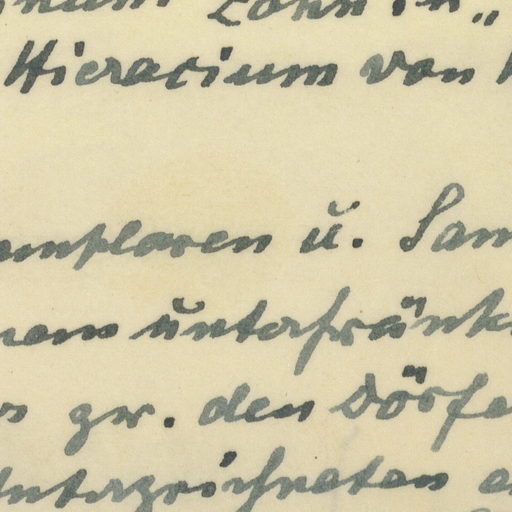 Zahn in „
Hieracium von
emplaren u. Sam
nem unterfränk
rs zw. den Dörfe
Unterzeichneten e